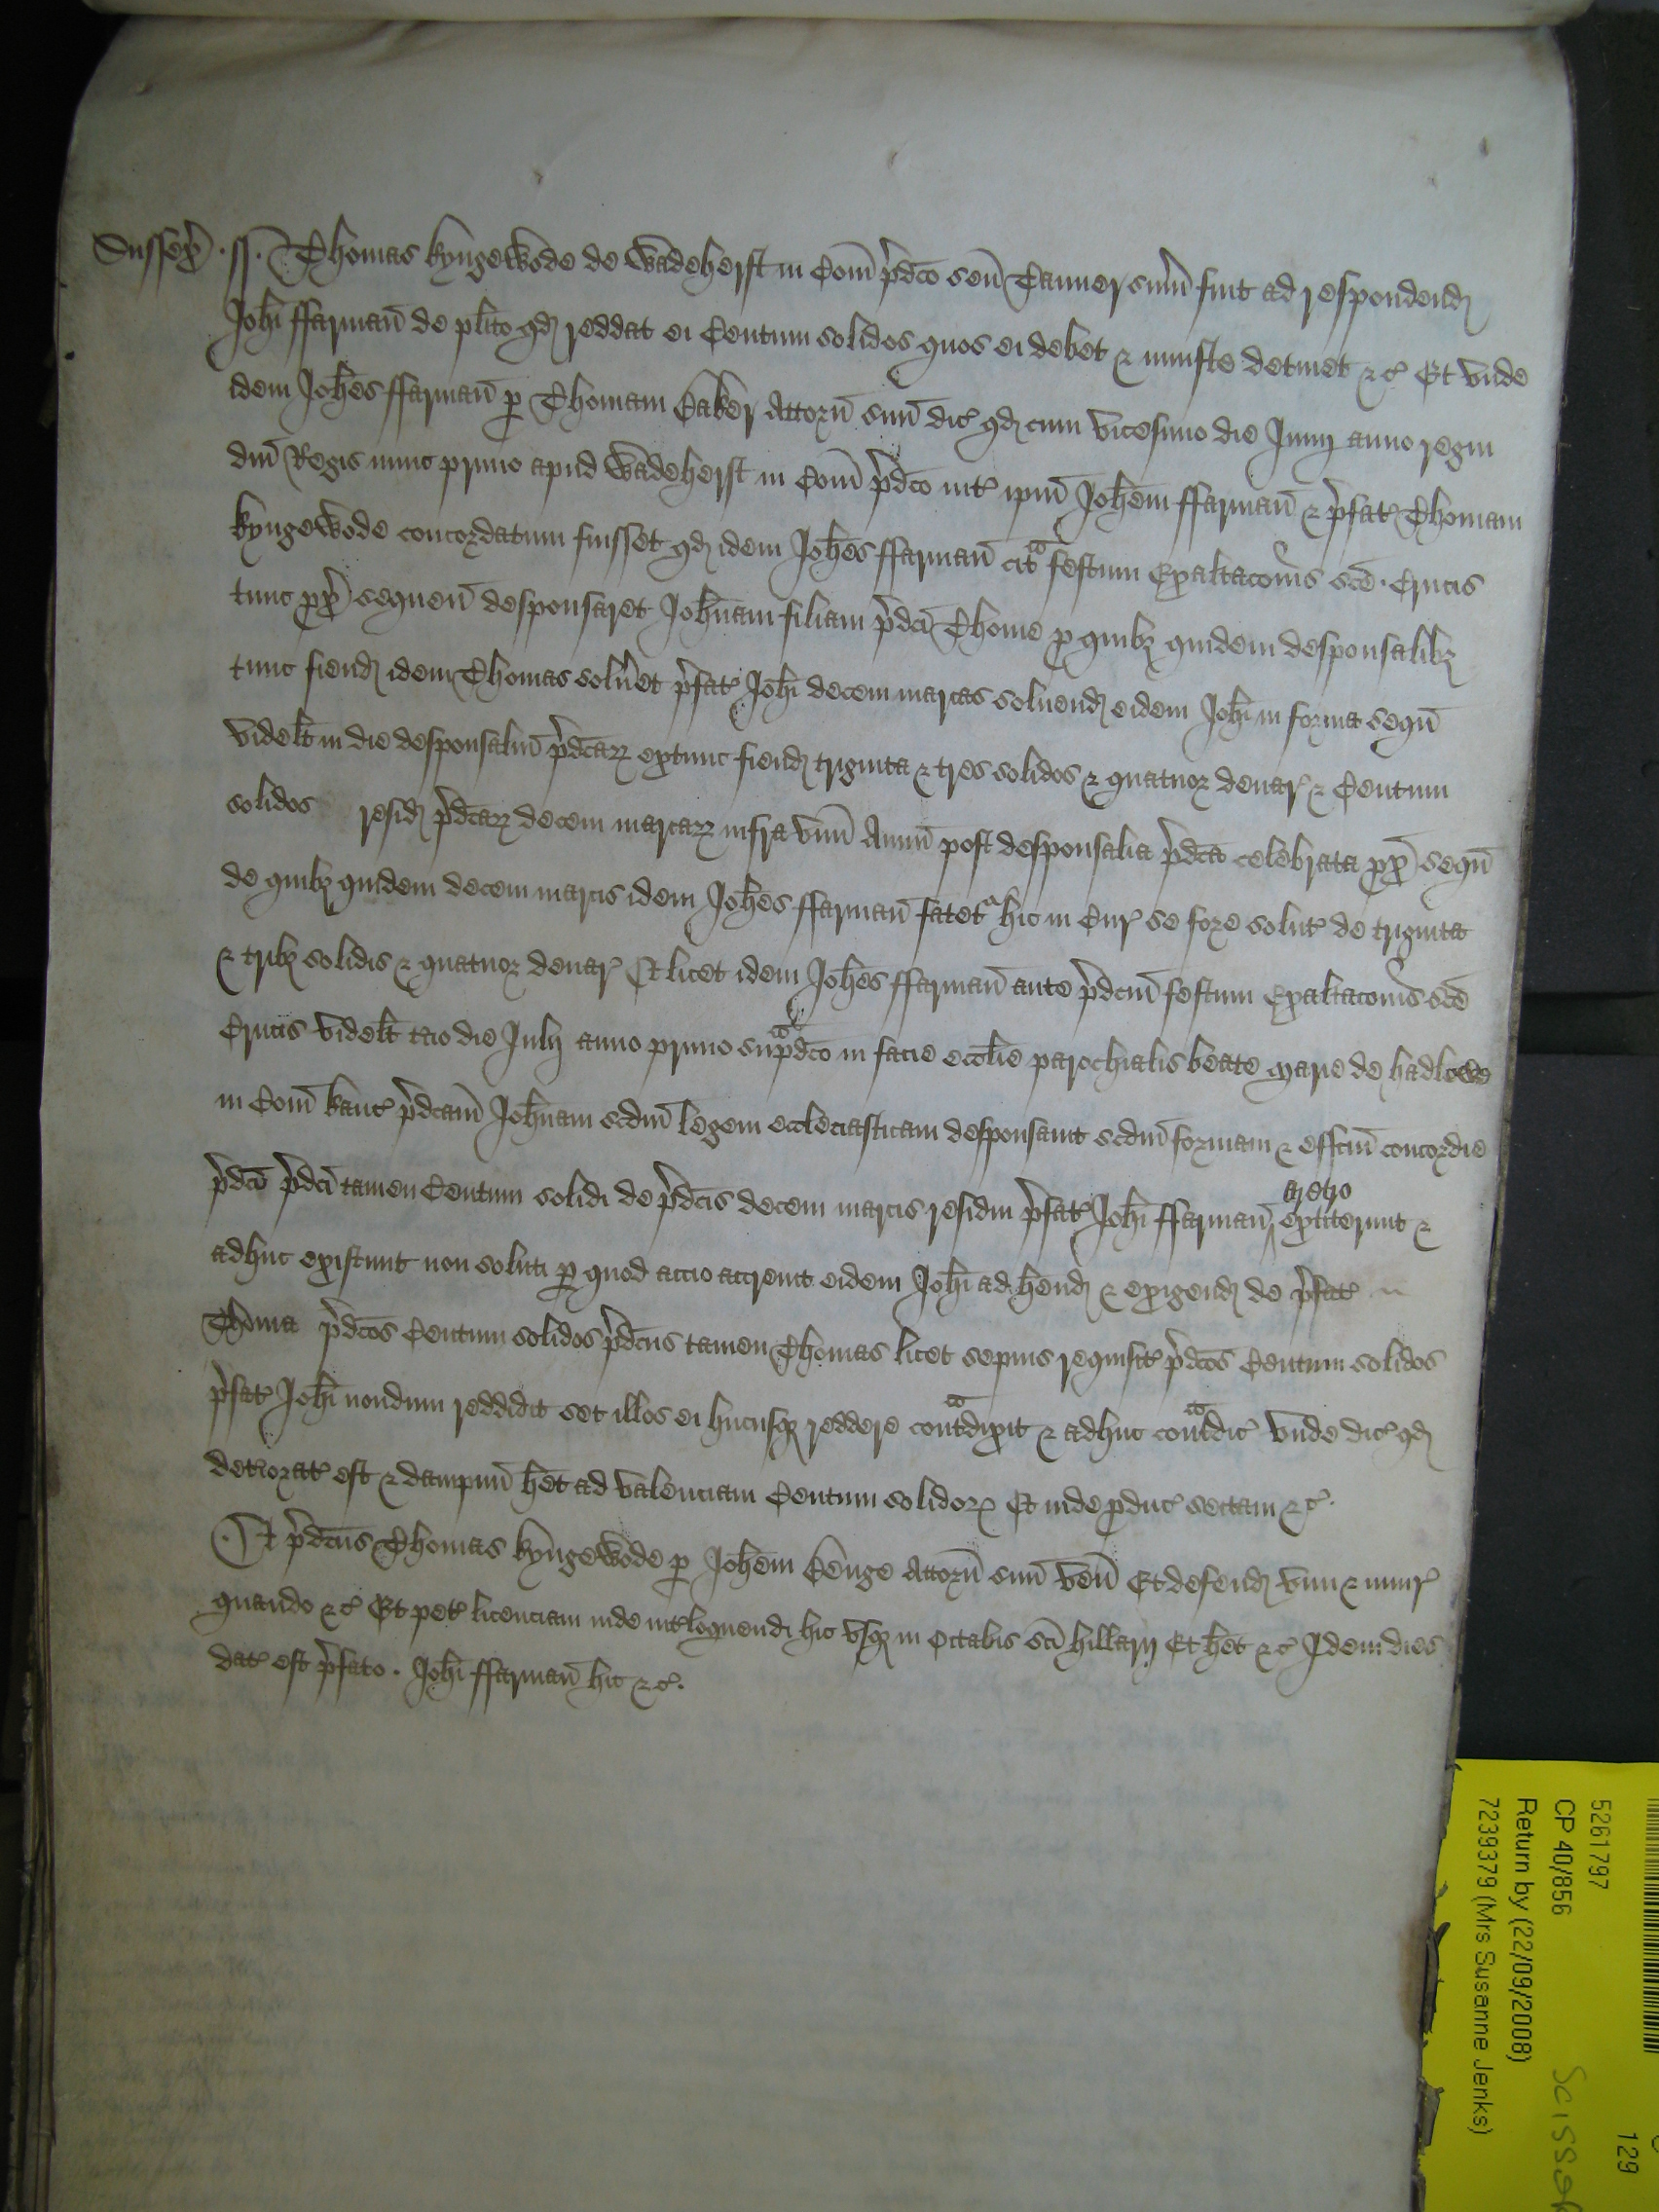 Sussex̃ · ss · Thomas Kyngewode de Wadeherst in Com̃ p̃dc̃o sen̄ Tanner sum̃ fuit ad respondend
Joh̃i ffarman̄ de pl̃ito qd reddat ei Centum solidos quos ei debet & iniuste detinet &c̃ Et vnde
idem Joh̃es ffarman̄ p Thomam Baker Attorñ suũ dic̃ qd cum vicesimo die Junij anno regni
dñi Regis nunc primo apud Wadeherst in Com̃ p̃dc̃o int̃ ip̃m Joh̃em ffarman̄ & p̃fat̃ Thomam
Kyngewode concordatum fuisset qd idem Joh̃es ffarman̄ cit̃ festum Exaltac̃onis sc̃e · Crucis
tunc px̃ sequen̄ desponsaret Joh̃nam filiam p̃dc̃i Thome p quibȝ quidem desponsalibȝ
tunc fiend idem Thomas solũet p̃fat̃ Joh̃i decem marcas soluend eidem Joh̃i in forma seqū
videl̃t in die desponsaliũ p̃dc̃arȝ extunc fiend triginta & tres solidos & quatuor denar̃ & Centum
solidos resid p̃dc̃arȝ decem marcarȝ infra vnũ Annũ post desponsalia p̃dc̃a celebrata px̃ seqū
de quibȝ quidem decem marcis idem Joh̃es ffarman̄ fatet̃ hic in Cur̃ se fore solut̃ de triginta
& tribȝ solidis & quatuor denar̃ Et licet idem Joh̃es ffarman̄ ante p̃dc̃m festum Exaltac̃onis sc̃e
Crucis videl̃t t̃cio die Julij anno primo sup̃dc̃o in facie eccl̃ie parochialis beate Marie de hadlowe
in Com̃ kanc̃ p̃dc̃am Joh̃nam scdm̃ legem eccleciasticam desponsauit scdm̃ formam & effc̃m concordie
p̃dc̃e p̃dc̃i tamen Centum solidi de p̃dc̃is decem marcis residui p̃fat̃ Joh̃i ffarman̄ aretro extiterunt &
adhuc existunt non soluti p quod accio accreuit eidem Joh̃i ad h̃end & exigend de p̃fat̃
Thoma p̃dc̃os Centum solidos p̃dc̃us tamen Thomas licet sepius requisit̃ p̃dc̃os Centum solidos
p̃fat̃ Joh̃i nondum reddidit set illos ei hucusqȝ reddere cont̃dixit & adhuc cont̃dic̃ vnde dic̃ qd
deteriorat̃ est & dampnũ h̃et ad valenciam Centum solidorȝ Et inde pduc̃ sectam &c̃ ·
· Et p̃dc̃us Thomas Kyngewode p Joh̃em Benge Attorñ suũ veñ Et defend vim & iniur̃
quando &c̃ Et pet̃ licenciam inde int̃loquendi hic vsqȝ in Octabis sc̃i hillarij Et h̃et &c̃ Idem dies
dat̃ est p̃fato · Joh̃i ffarman̄ hic &c̃ ·
5261797
CP 40/856
Return by (22/09/2008)
7239379 (Mrs Susanne Jenks)
129